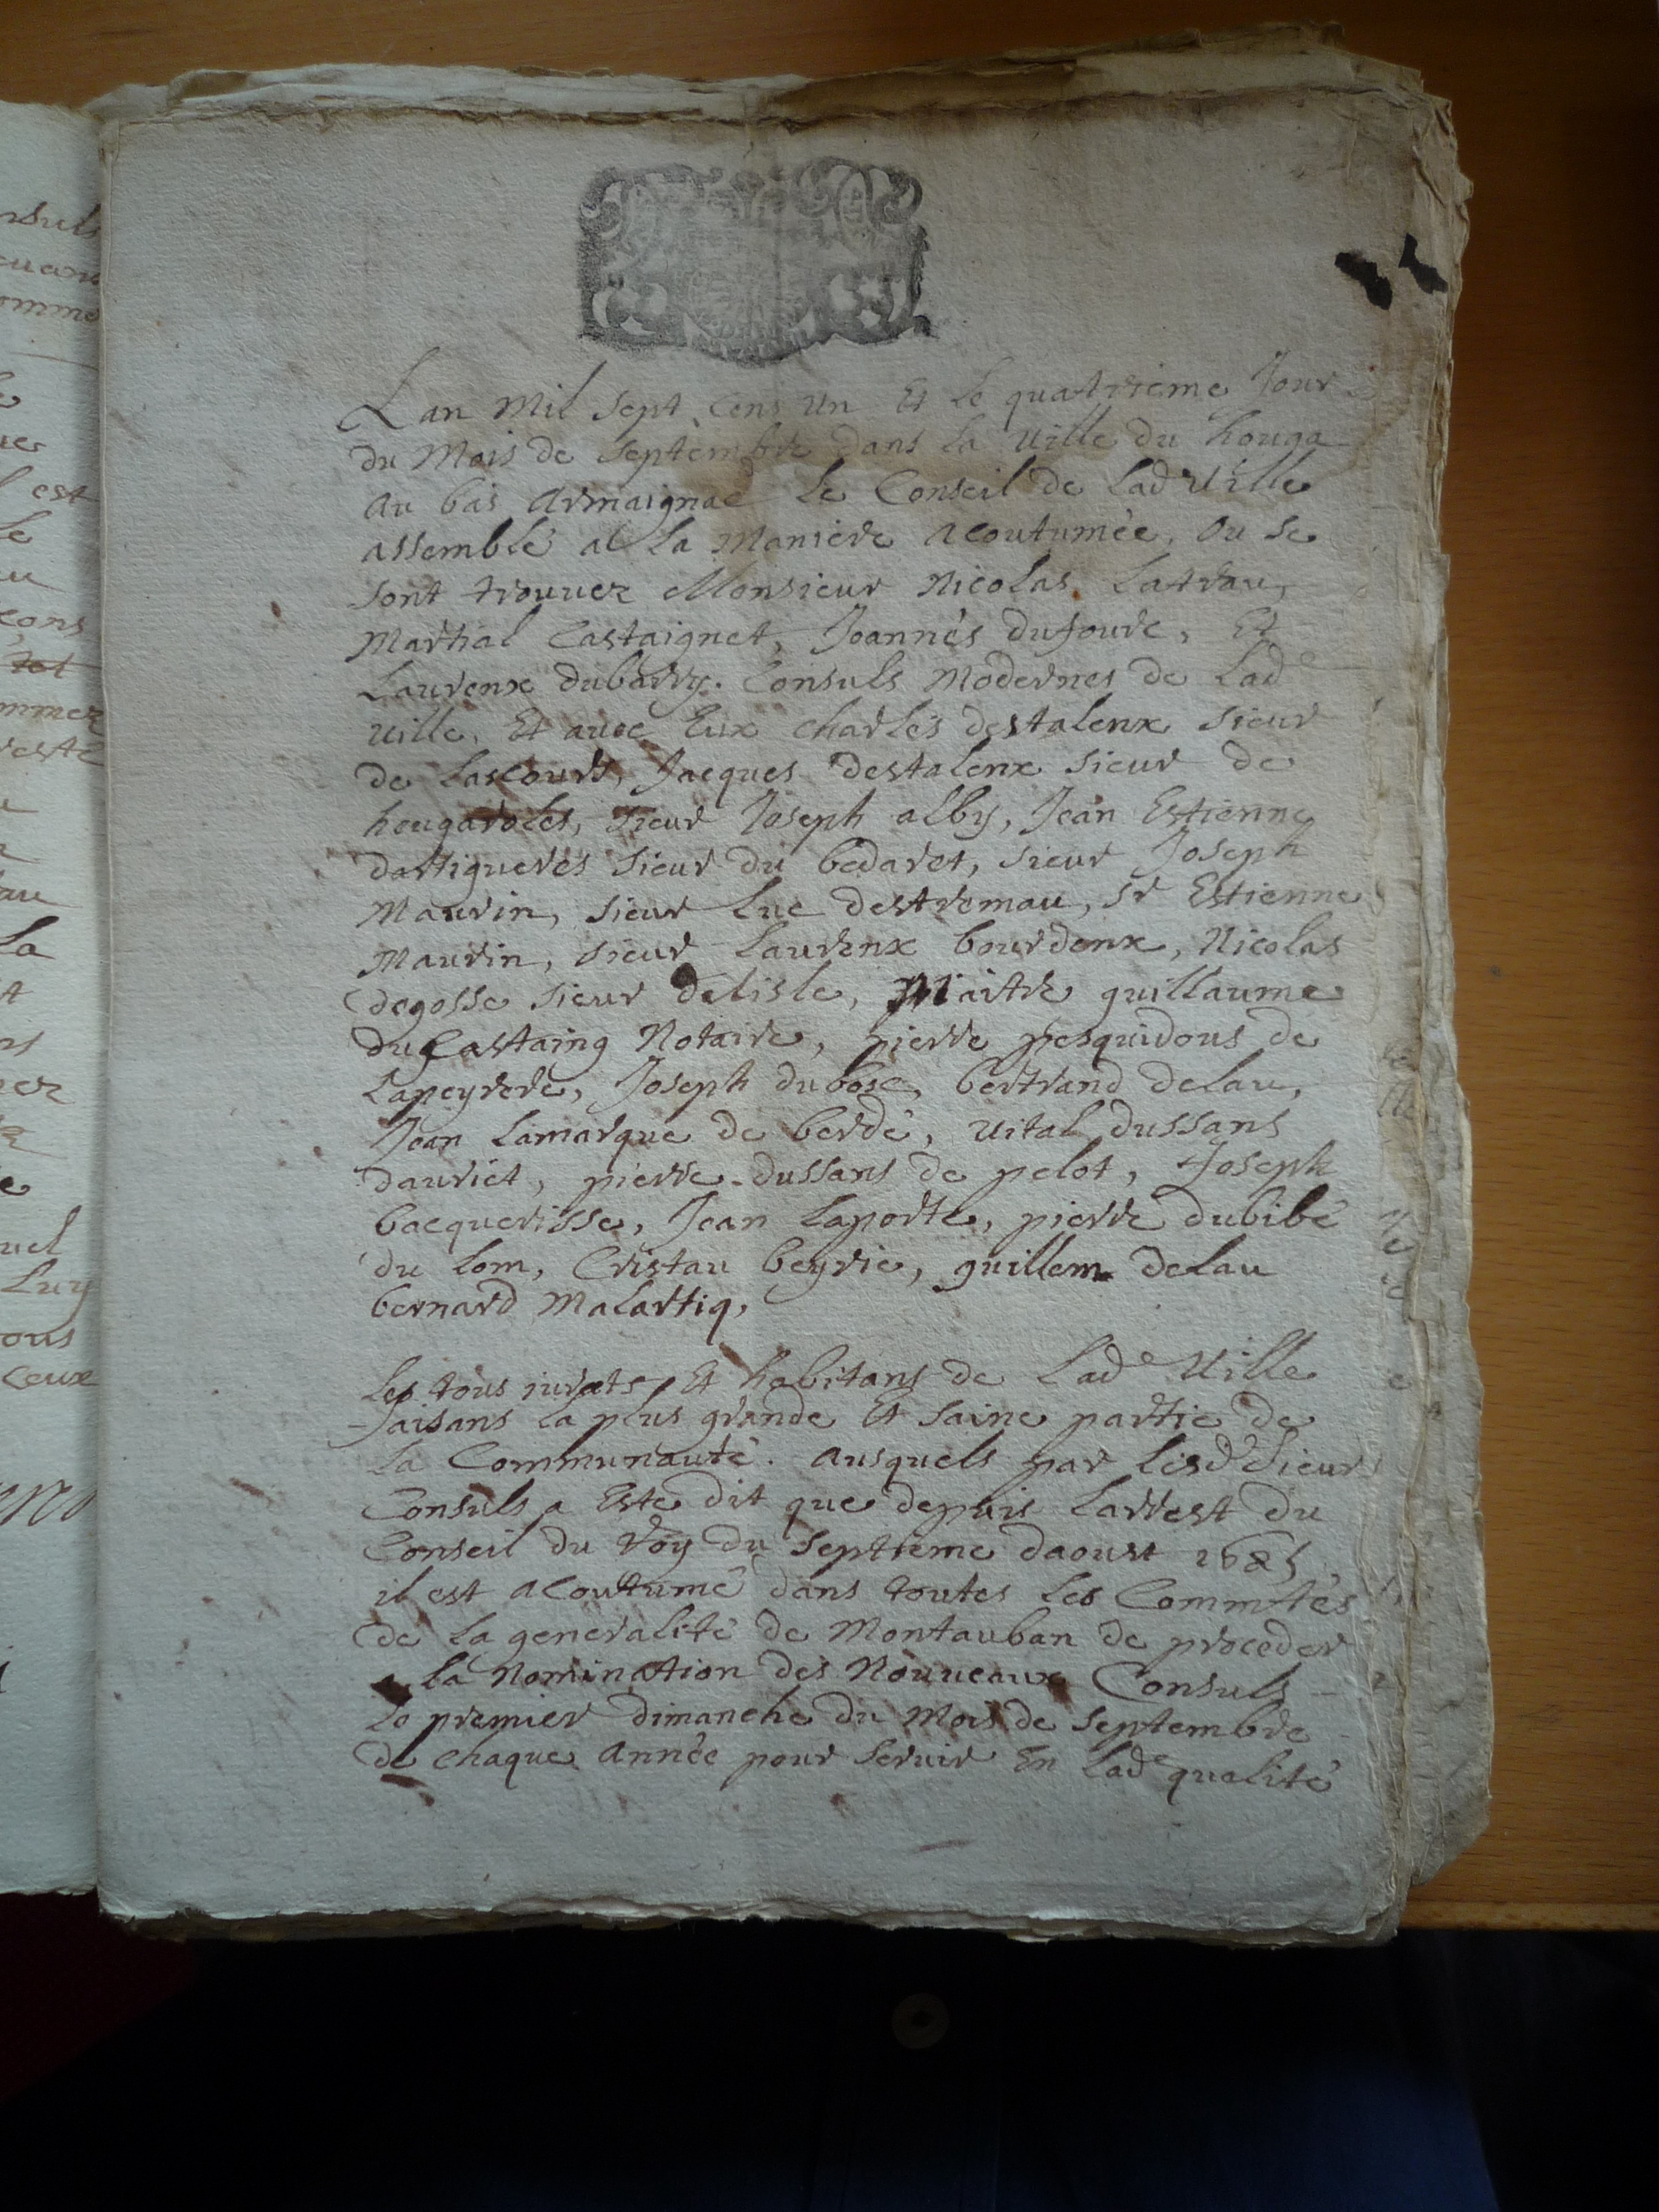 Lan Mil Sept Cens Un Et Le quatrieme Jour
du Mois de Septembre dans la Ville du houga
au bas Armaignac Le Conseil de Lad Ville
assemblé a La Maniere Acoutumée, Ou se
sont trouuez Monsieur Nicolas Latrau,
Martial Castaignet, Joannès dufourc, Et
Laurenx dubarry. Consuls Modernes de Lade
Uille, Et auec Eux charles destalenx Sieur
de Lascourts, Jacques destalenx Sieur de
hougaroles, Sieur Joseph alby, Jean Estienne
dartigueres Sieur du bedaret, Sieur Joseph
Maurin, Sieur Luc destremau, Sr Estienne
Maurin, Sieur Laurenx bourdenx, Nicolas
degosse Sieur delisle, Maitre guillaume
ducastaing Notaire, pierre pesquidous de
Lapeyrere, Joseph dubosc, bertrand delau,
Jean Lamarque de berdé, Uital dussans
dauriet, pierre dussans de pelot, Joseph
bacquerisse, Jean Laporte, pierre dubibé
du lom, Cristau beyrie, guillem delau
bernard Malartiq,
Les tous iurats Et habitans de Lade Uille
faisans La plus grande Et Saine partie de
La Communauté. Ausquels par Lesd Sieurs
Consuls a Esté dit que depuis Larrest du
Conseil du Roy du Septieme daoust 1685
il est Acoutumé dans toutes Les Commtés
de La generalité de Montauban de proceder
a La Nomination des Nouueaux Consuls
Le premier dimanche du Mois de Septembre
de chaque Année pour Seruir En Lade qualité